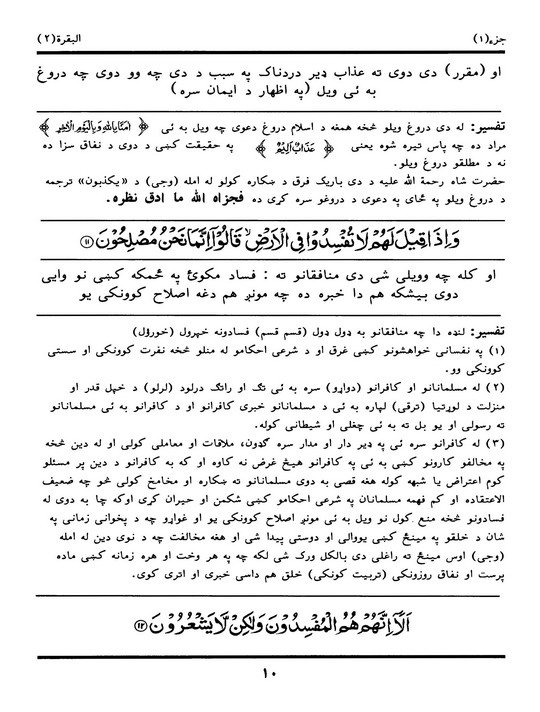 جزء(۱) البقرة(۲)
او (مقرر) دی دوی ته عذاب ډیر دردناک په سبب د دی چه وو دوی چه دروغ
به ئی ویل (په اظهار د ایمان سره)
تفسیر: له دی دروغ ویلو څخه همغه د اسلام دروغ دعوی چه ویل به ئی ﴿ اٰمَنَّا بِاللّٰهِ وَبِالْیَوْمِ الْاٰخِرِ ﴾
مراد ده چه پاس تیره شوه یعنی ﴿ عَذَابٌ اَلِیْمٌ ﴾ په حقیقت کښی د دوی د نفاق سزا ده
نه د مطلقو دروغ ویلو.
حضرت شاه رحمة الله علیه د دی باریک فرق د ښکاره کولو له امله (وجی) د «یکذبون» ترجمه
د دروغ ویلو په ځای په دعوی د دروغو سره کری ده فجزاه الله ما ادق نظره.
وَاِذَا قِیْلَ لَهُمْ لَا تُفْسِدُوْا فِی الْاَرْضِ ۙ قَالُوْٓا اِنَّمَا نَحْنُ مُصْلِحُوْنَ ⑪
او کله چه وویلی شی دی منافقانو ته : فساد مکوئ په ځمکه کښی نو وایی
دوی بیشکه هم دا خبره ده چه مونږ هم دغه اصلاح کوونکی یو
تفسیر: لنډه دا چه منافقانو به ډول ډول (قسم قسم) فسادونه خپرول (خورؤل)
(۱) په نفسانی خواهشونو کښی غرق او د شرعی احکامو له منلو څخه نفرت کوونکی او سستی
کوونکی وو.
(۲) له مسلمانانو او کافرانو (دواړو) سره به ئی تگ او راتگ درلود (لرلو) د خپل قدر او
منزلت د لوړتیا (ترقی) لپاره به ئی د مسلمانانو خبری کافرانو او د کافرانو به ئی مسلمانانو
ته رسولی او یو بل ته به ئی چغلی او شیطانی کوله.
(۳) له کافرانو سره ئی په ډیر دار او مدار سره گډون، ملاقات او معاملی کولی او له دین څخه
په مخالفو کارونو کښی به ئی په کافرانو هیڅ غرض نه کاوه او که به کافرانو د دین پر مسئلو
کوم اعتراض یا شبهه کوله هغه قصی به دوی مسلمانانو ته ښکاره او مخامخ کولی څو چه ضعیف
الاعتقاده او کم فهمه مسلمانان په شرعی احکامو کښی شکمن او حیران کری اوکه چا به دوی له
فسادونو څخه منع کول نو ویل به ئی مونږ اصلاح کوونکی یو او غواړو چه د پخوانی زمانی په
شان د خلقو په مینځ کښی یووالی او دوستی پیدا شی او هغه مخالفت چه د نوی دین له امله
(وجی) اوس مینځ ته راغلی دی بالکل ورک شی لکه چه په هر وخت او هره زمانه کښی ماده
پرست او نفاق روزونکی (تربیت کونکی) خلق هم داسی خبری او اتری کوی.
اَلَآ اِنَّهُمْ هُمُ الْمُفْسِدُوْنَ وَلٰكِنْ لَّا یَشْعُرُوْنَ ⑫
۱۰